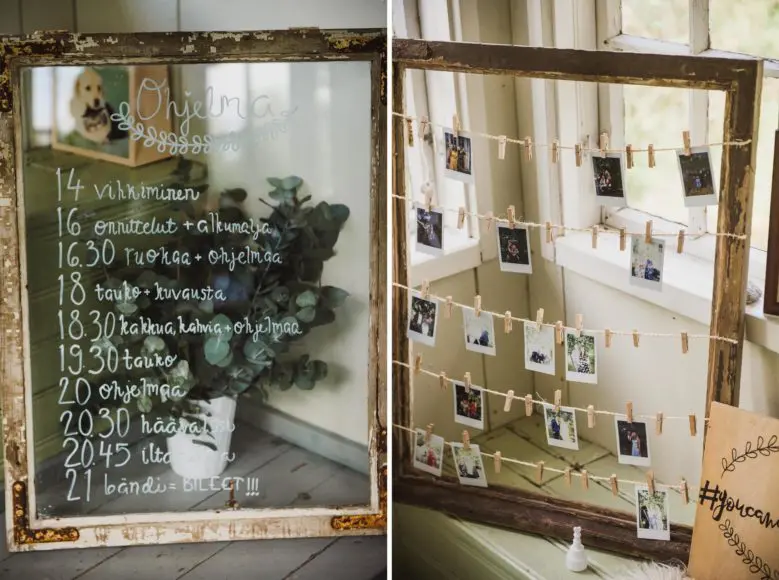 Ohjelma
14 vihkiminen
16 onnittelut + alkumalja
16.30 ruokaa + ohjelmaa
18 tauko + kuvausta
18.30 kakkua, kahvia, + ohjelmaa
19.30 tauko
20 ohjelmaa
20.30
20.45
21 bändi = BILEET!!!